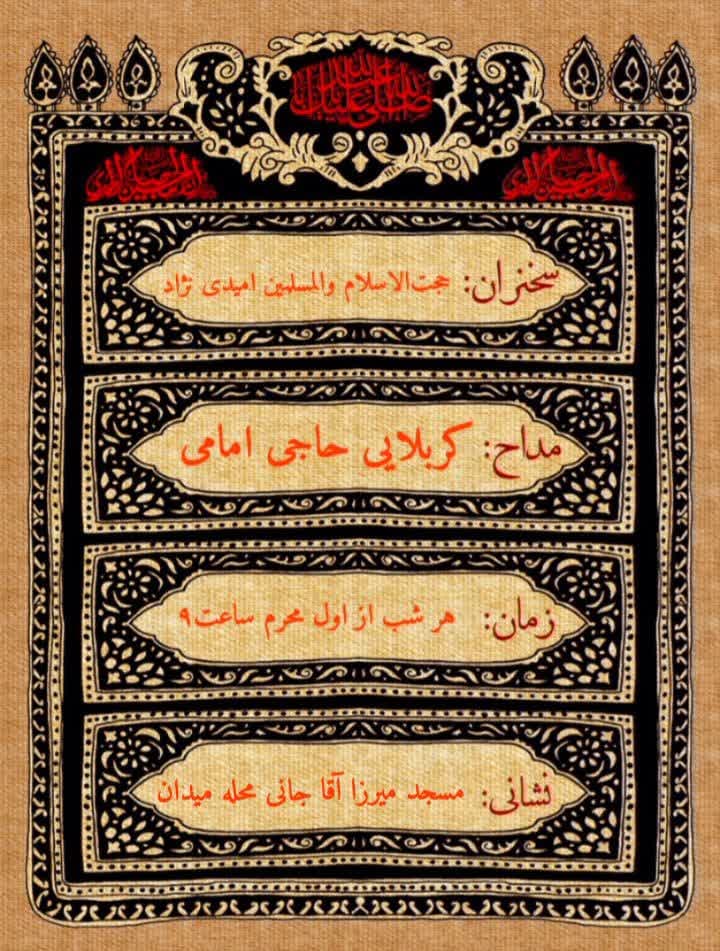 صلی الله علیک یا اباعبدالله
سخنران: حجت‌الاسلام والمسلمین امیدی نژاد
مداح: کربلایی حاجی امامی
زمان: هر شب از اول محرم ساعت۹
نشانی: مسجد میرزا آقا جانی محله میدان